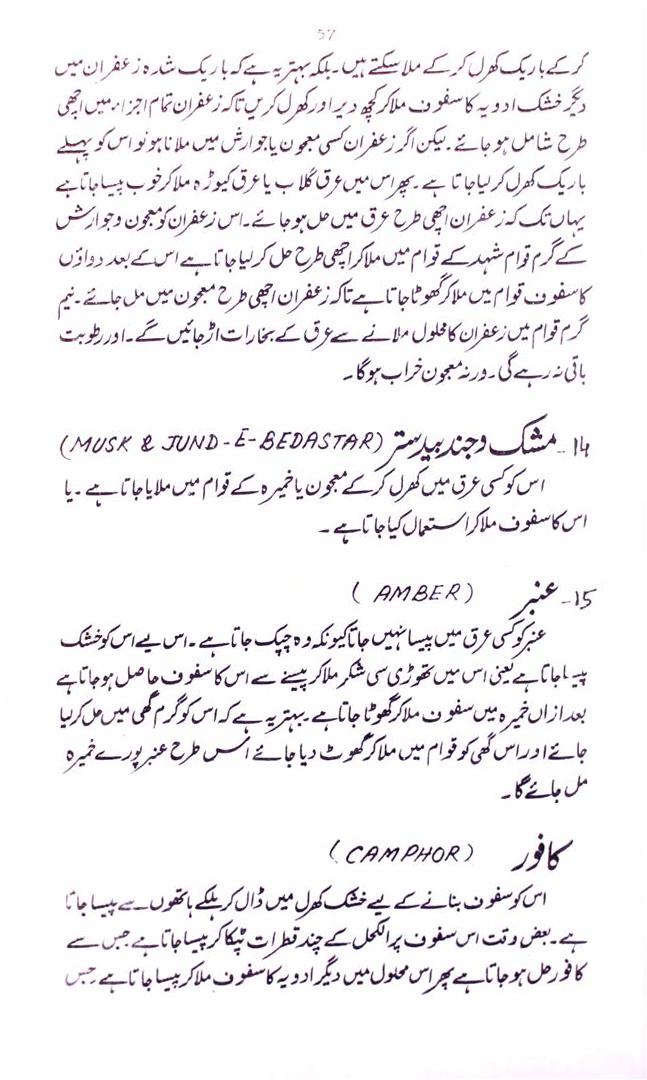 57
کرکے باریک کھرل کرکے ملا سکتے ہیں۔ بلکہ بہتر یہ ہے کہ باریک شدہ زعفران میں
دیگر خشک ادویہ کا سفوف ملا کر کچھ دیر اور کھرل کریں تاکہ زعفران تمام اجزاء میں اچھی
طرح شامل ہو جائے۔ لیکن اگر زعفران کسی معجون یا جوارش میں ملانا ہو تو اس کو پہلے
باریک کھرل کر لیا جاتا ہے۔ پھر اس میں عرق گلاب یا عرق کیوڑہ ملا کر خوب پیسا جاتا ہے
یہاں تک کہ زعفران اچھی طرح عرق میں حل ہو جائے۔ اس زعفران کو معجون و جوارش
کے گرم قوام شہد کے قوام میں ملا کر اچھی طرح حل کر لیا جاتا ہے اس کے بعد دواؤں
کا سفوف قوام میں ملا کر گھوٹا جاتا ہے تاکہ زعفران اچھی طرح معجون میں مل جائے۔ نیم
گرم قوام میں زعفران کا محلول ملانے سے عرق کے بخارات اڑ جائیں گے۔ اور رطوبت
باقی نہ رہے گی۔ ورنہ معجون خراب ہوگا۔
14۔ مشک و جند بیدستر (MUSK & JUND-E-BEDASTAR)
اس کو کسی عرق میں کھرل کرکے معجون یا خمیرہ کے قوام میں ملایا جاتا ہے۔ یا
اس کا سفوف ملا کر استعمال کیا جاتا ہے۔
15۔ عنبر (AMBER)
عنبر کو کسی عرق میں پیسا نہیں جاتا کیونکہ وہ چپک جاتا ہے۔ اس لیے اس کو خشک
پیسا جاتا ہے یعنی اس میں تھوڑی سی شکر ملا کر پیسنے سے اس کا سفوف حاصل ہو جاتا ہے
بعد ازاں خمیرہ میں سفوف ملا کر گھوٹا جاتا ہے۔ بہتر یہ ہے کہ اس کو گرم گھی میں حل کر لیا
جائے اور اس گھی کو قوام میں ملا کر گھوٹ دیا جائے اس طرح عنبر پورے خمیرہ
مل جائے گا۔
کافور (CAMPHOR)
اس کو سفوف بنانے کے لیے خشک کھرل میں ڈال کر ہلکے ہاتھوں سے پیسا جاتا
ہے۔ بعض وقت اس سفوف پر الکحل کے چند قطرات ٹپکا کر پیسا جاتا ہے جس سے
کافور حل ہو جاتا ہے پھر اس محلول میں دیگر ادویہ کا سفوف ملا کر پیسا جاتا ہے جس